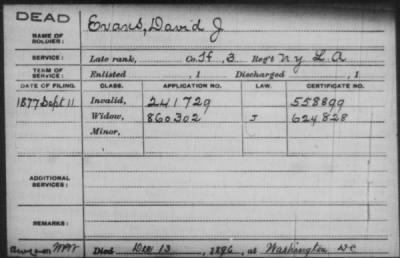 DEAD
NAME OF SOLDIER: Evans, David J
SERVICE: Late rank, Co. H, 3 Reg't N Y L A
TERM OF SERVICE: Enlisted , 1 Discharged , 1
DATE OF FILING. CLASS. APPLICATION NO. LAW. CERTIFICATE NO.
1877 Sept 11 Invalid, 241729 558899
Widow, 860302 J 624828
Minor,
ADDITIONAL SERVICES:
REMARKS:
Died Dec 13, 1896, at Washington DC